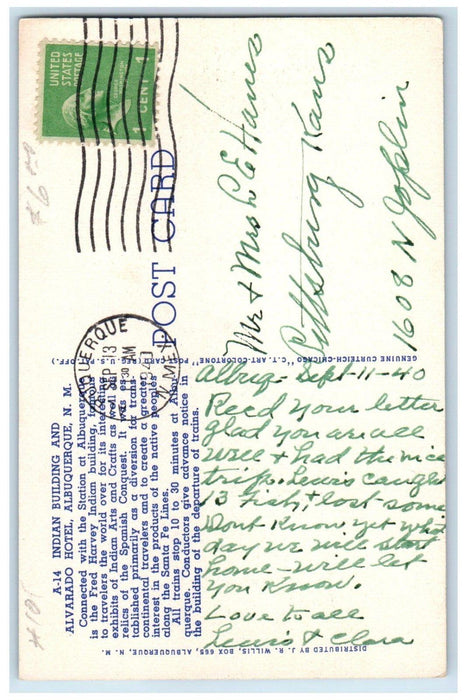 UNITED
STATES
POSTAGE
1 CENT 1
POST CARD
ALBUQUERQUE
SEP 13
30 AM
1940
N. MEX.
Mr & Mrs L E Hames
Pittsburg Kans
1608 N Joplin
GENUINE CURTEICH-CHICAGO "C.T. ART-COLORTONE" POST CARD (REG. U.S. PAT. OFF.)
A-14 INDIAN BUILDING AND
ALVARADO HOTEL, ALBUQUERQUE, N. M.
Connected with the Station at Albuquerque
is the Fred Harvey Indian building, famous
to travelers the world over for its interesting
exhibits of Indian Arts and Crafts as well as
relics of the Spanish Conquest. It was es-
tablished primarily as a diversion for trans-
continental travelers and to create a greater
interest in the products of the native peoples
along the Santa Fe Lines.
All trains stop 10 to 30 minutes at Albu-
querque. Conductors give advance notice in
the building of the departure of trains.
Albuq- Sept-11-40
Recd your letter
glad you are all
well & had the nice
trip. Lewis caught
13 Fish, & lost some
Dont know yet what
day we will start
home - will let
you know.
Love to all
Lewis & Clara
DISTRIBUTED BY J. R. WILLIS, BOX 665, ALBUQUERQUE, N. M.